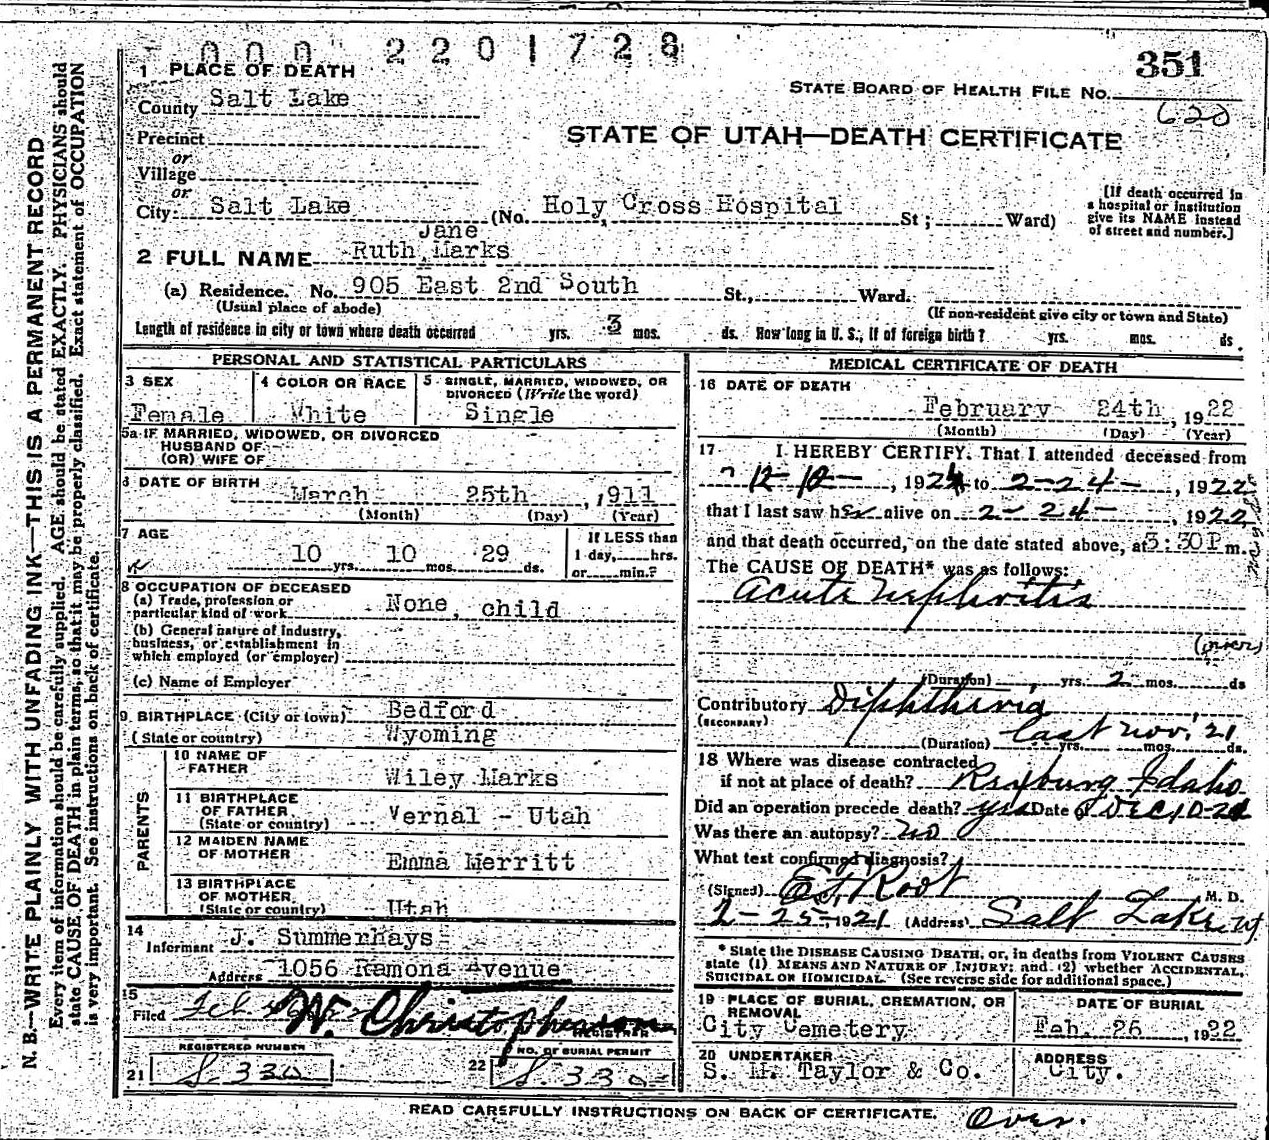 000 2201728
351
1 PLACE OF DEATH
STATE BOARD OF HEALTH FILE No.
County Salt Lake
620
STATE OF UTAH—DEATH CERTIFICATE
Precinct
or
Village
or
City Salt Lake (No. Holy Cross Hospital St; Ward)
[If death occurred in
a hospital or institution
give its NAME instead
of street and number.]
Jane
2 FULL NAME Ruth Marks
(a) Residence. No. 905 East 2nd South St., Ward.
(Usual place of abode) (If non-resident give city or town and State)
Length of residence in city or town where death occurred yrs. 3 mos. ds. How long in U. S., if of foreign birth? yrs. mos. ds.
PERSONAL AND STATISTICAL PARTICULARS
3 SEX
Female
4 COLOR OR RACE
White
5 SINGLE, MARRIED, WIDOWED, OR
DIVORCED (Write the word)
Single
5a IF MARRIED, WIDOWED, OR DIVORCED
HUSBAND OF
(OR) WIFE OF
6 DATE OF BIRTH
March 25th, 1911
(Month) (Day) (Year)
7 AGE
10 yrs. 10 mos. 29 ds.
If LESS than
1 day, hrs.
or min.?
8 OCCUPATION OF DECEASED
(a) Trade, profession or
particular kind of work None, child
(b) General nature of industry,
business, or establishment in
which employed (or employer)
(c) Name of Employer
9 BIRTHPLACE (City or town) Bedford
(State or country) Wyoming
PARENTS
10 NAME OF
FATHER Wiley Marks
11 BIRTHPLACE
OF FATHER
(State or country) Vernal - Utah
12 MAIDEN NAME
OF MOTHER Emma Merritt
13 BIRTHPLACE
OF MOTHER
(State or country) Utah
14
Informant J. Summerhays
Address 1056 Ramona Avenue
15
Filed Feb W. Christopherson
REGISTRAR
REGISTERED NUMBER
21 S. 330
NO. OF BURIAL PERMIT
22 S. 330
MEDICAL CERTIFICATE OF DEATH
16 DATE OF DEATH
February 24th, 1922
(Month) (Day) (Year)
17 I HEREBY CERTIFY, That I attended deceased from
12-10-, 1921 to 2-24-, 1922
that I last saw her alive on 2-24-, 1922
and that death occurred, on the date stated above, at 3:30P m.
The CAUSE OF DEATH* was as follows:
Acute Nephritis
(over)
(Duration) yrs. 2 mos. ds
Contributory Diphtheria
(SECONDARY)
last Nov. '21
(Duration) yrs. mos. ds.
18 Where was disease contracted
if not at place of death? Rexburg Idaho
Did an operation precede death? yes Date of Dec 10-21
Was there an autopsy? no
What test confirmed diagnosis?
(Signed) E.F. Root M. D.
2-25-, 1921 (Address) Salt Lake, Ut
* State the DISEASE CAUSING DEATH, or, in deaths from VIOLENT CAUSES
state (1) MEANS AND NATURE OF INJURY; and (2) whether ACCIDENTAL,
SUICIDAL OR HOMICIDAL. (See reverse side for additional space.)
19 PLACE OF BURIAL, CREMATION, OR
REMOVAL
City Cemetery
DATE OF BURIAL
Feb. 26, 1922
20 UNDERTAKER
S. M. Taylor & Co.
ADDRESS
City.
READ CAREFULLY INSTRUCTIONS ON BACK OF CERTIFICATE.
Over.
N. B.—WRITE PLAINLY WITH UNFADING INK—THIS IS A PERMANENT RECORD
Every item of information should be carefully supplied. AGE should be stated EXACTLY. PHYSICIANS should
state CAUSE OF DEATH in plain terms, so that it may be properly classified. Exact statement of OCCUPATION
is very important. See instructions on back of certificate.